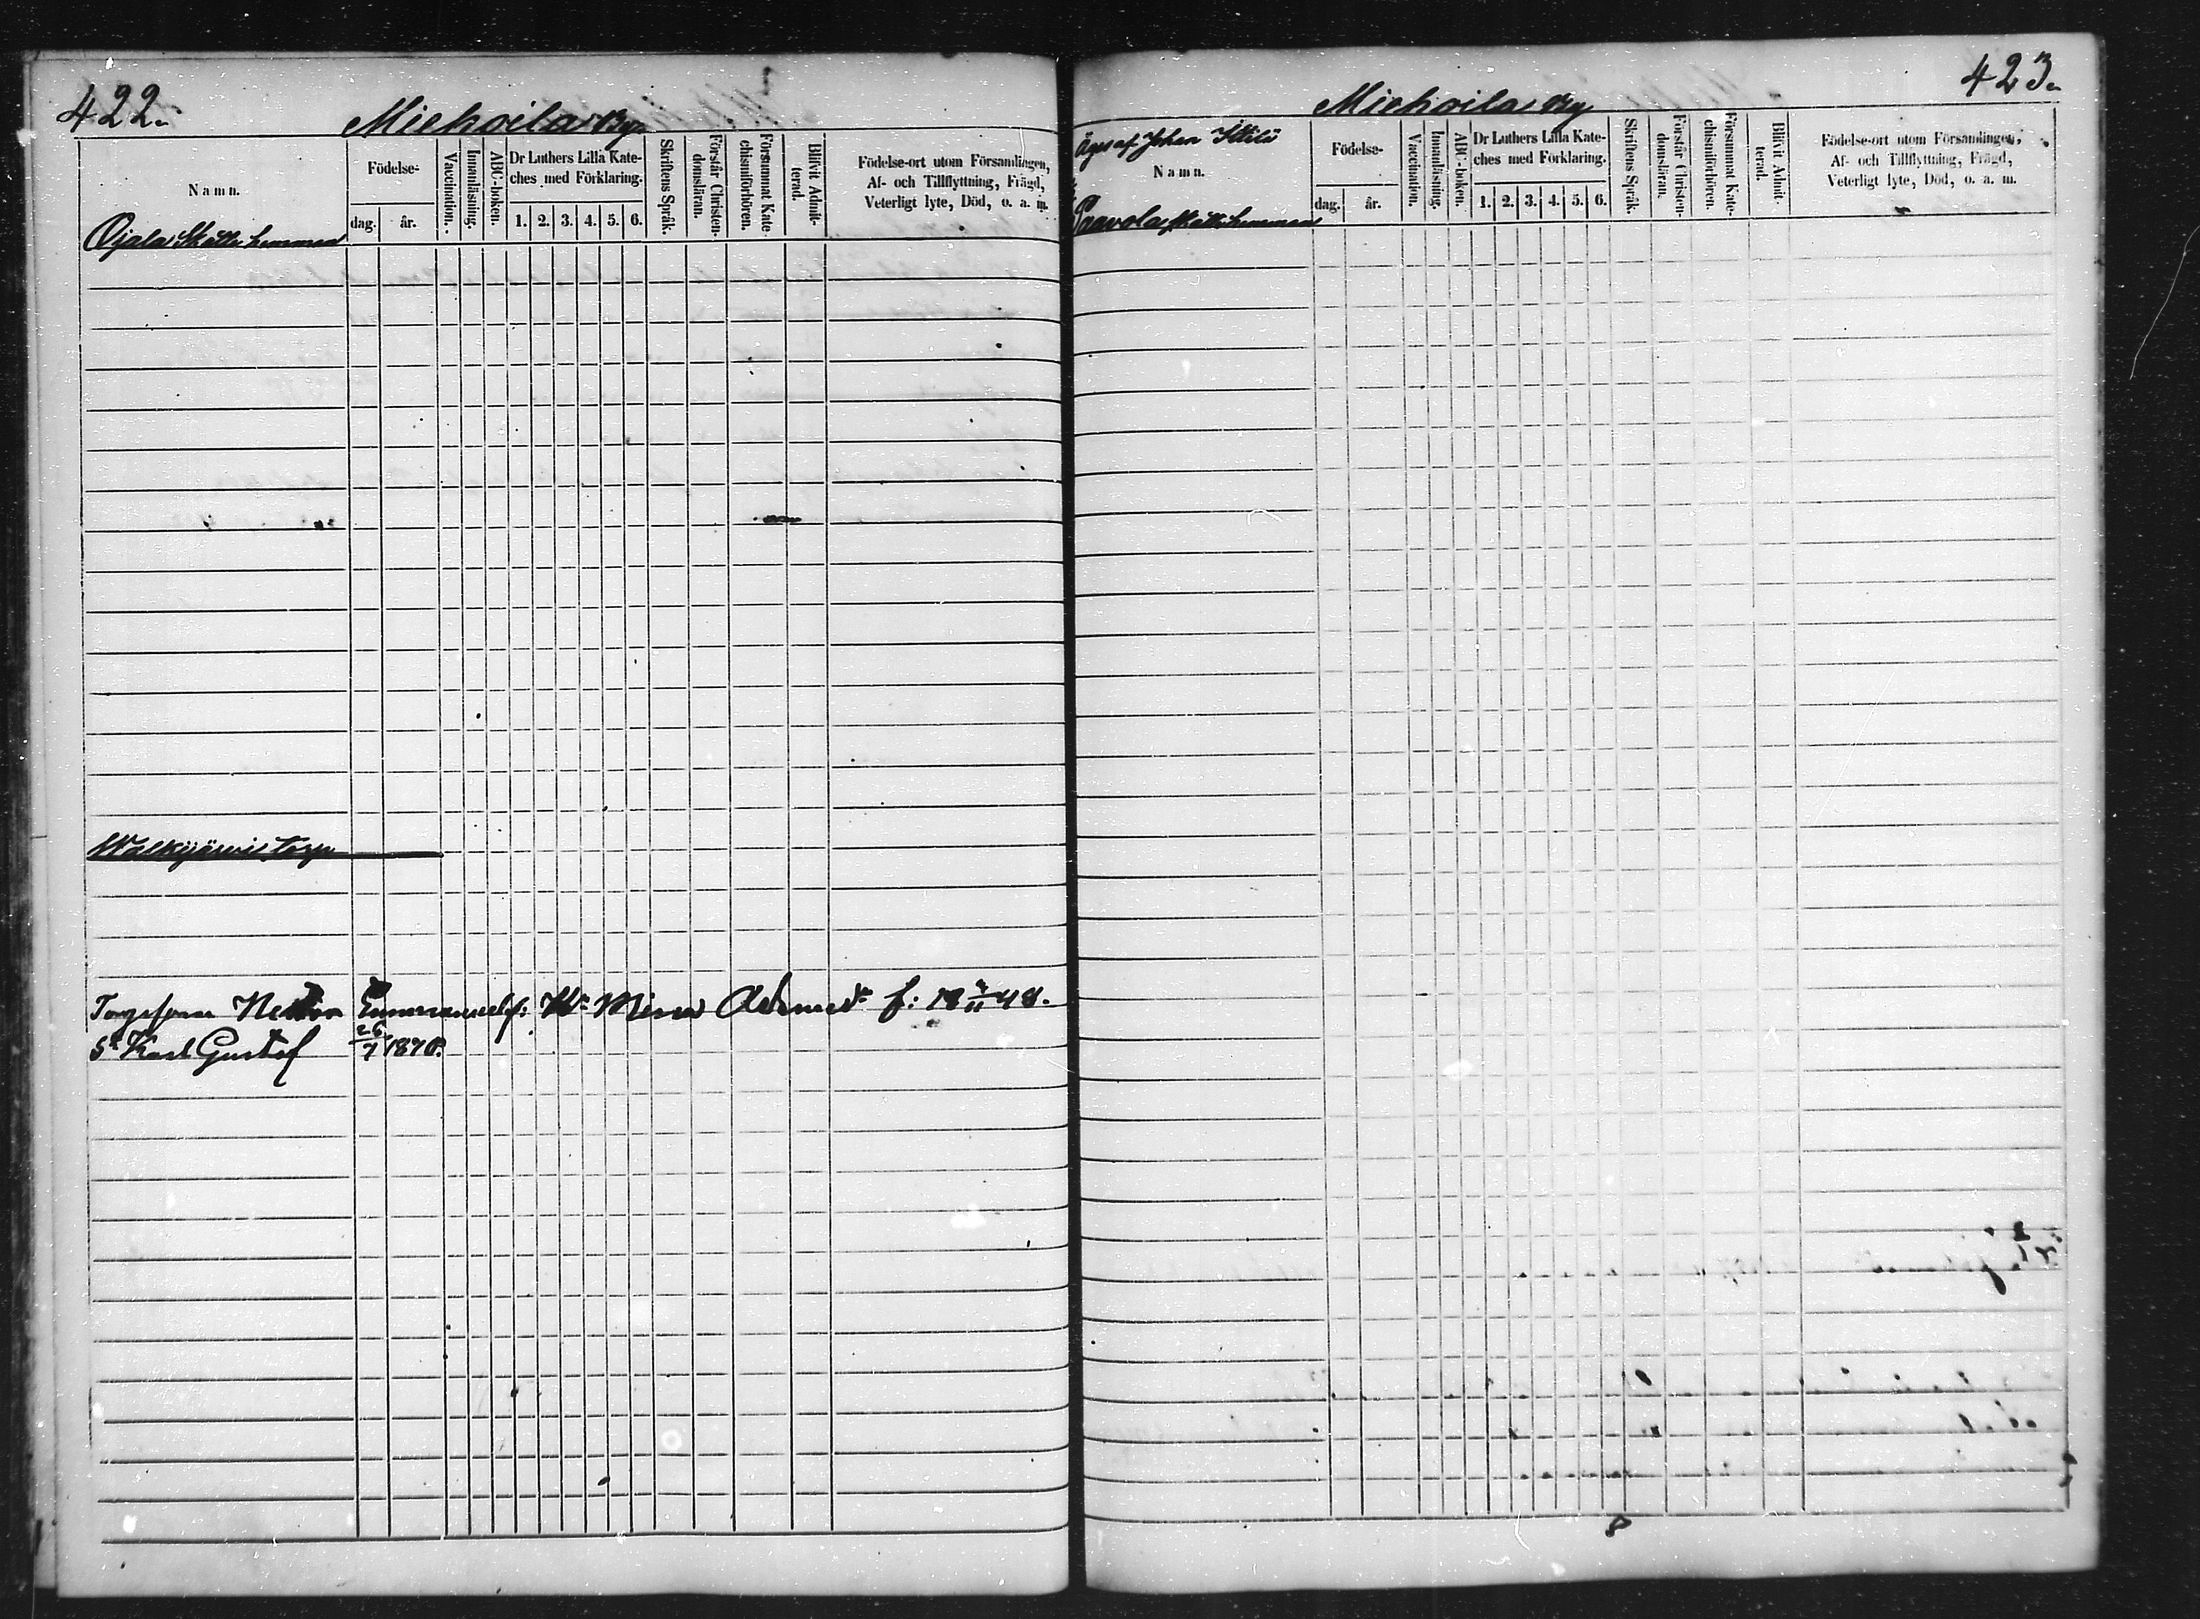 422.
Miekoila By
Namn.
Födelse-
dag.
år.
Vaccination.
Innanläsning.
ABC-boken.
Dr Luthers Lilla Kate-
ches med Förklaring.
1. 2. 3. 4. 5. 6.
Skriftens Språk.
Förstår Christen-
domsläran.
Försummat Kate-
chismiförhören.
Blifvit Admit-
terad.
Födelse-ort utom Församlingen,
Af- och Tillflyttning, Frägd,
Veterligt lyte, Död, o. a. m.
Ojala Skatte hemman
Walkjärvi torp
Nestor Emmanuelss: H:u Mina f: 18 48.
S. Karl Gustaf 26/7 1870.
423.
Miekoila By
Äges af Johan
Namn.
Födelse-
dag.
år.
Vaccination.
Innanläsning.
ABC-boken.
Dr Luthers Lilla Kate-
ches med Förklaring.
1. 2. 3. 4. 5. 6.
Skriftens Språk.
Förstår Christen-
domsläran.
Försummat Kate-
chismiförhören.
Blifvit Admit-
terad.
Födelse-ort utom Församlingen,
Af- och Tillflyttning, Frägd,
Veterligt lyte, Död, o. a. m.
Paavola Skatte hemman